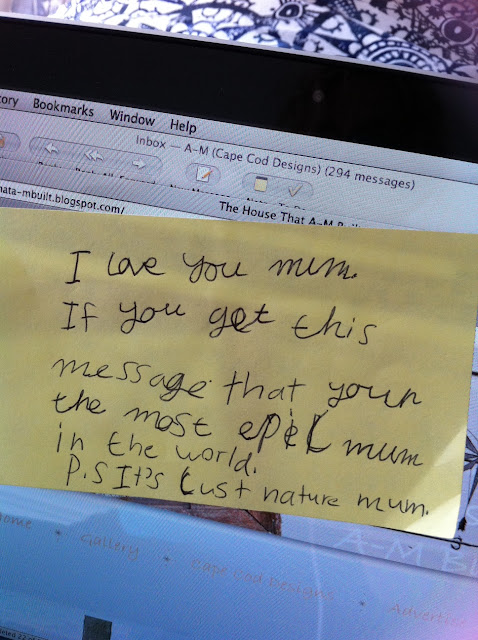 tory Bookmarks Window Help
Inbox — A-M (Cape Cod Designs) (294 messages)
hata-mbuilt.blogspot.com/
The House That A-M
I love you mum.
If you get this
message that your
the most epic mum
in the world.
P.S It's Lust nature mum.
A-M B
Home Gallery Cape Cod Designs Advertise